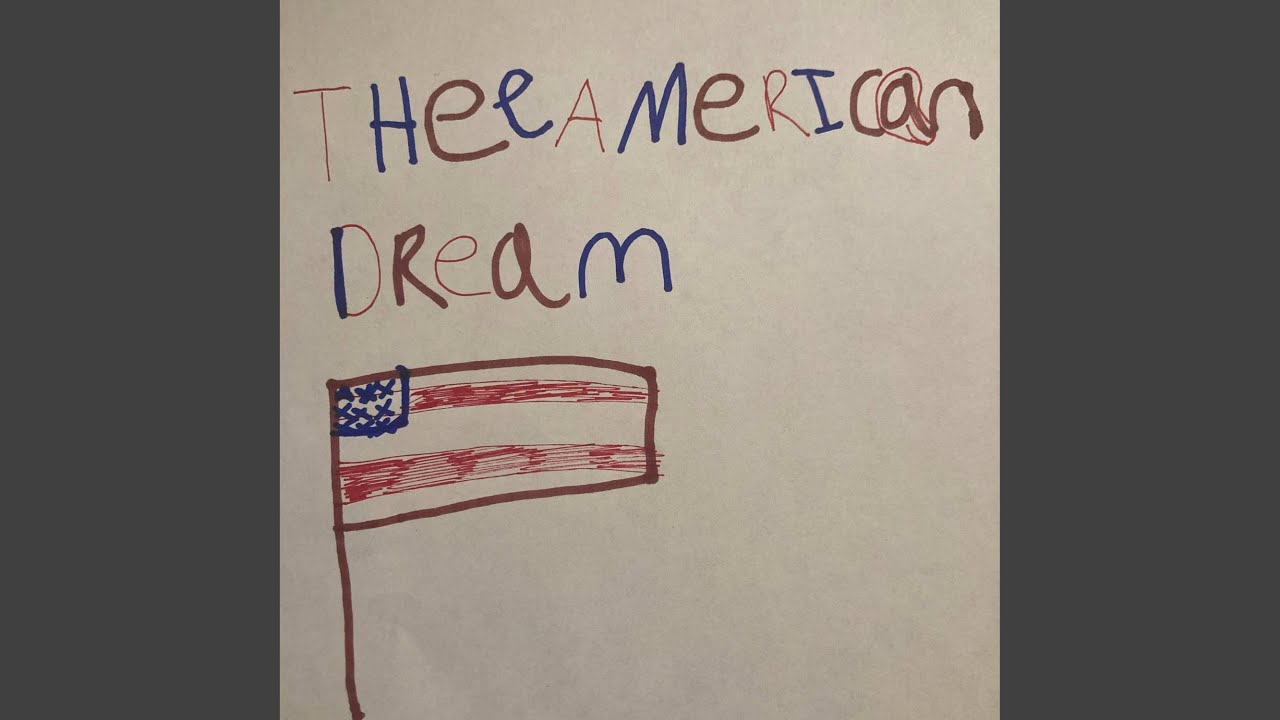 THee AMeRICan
DReam